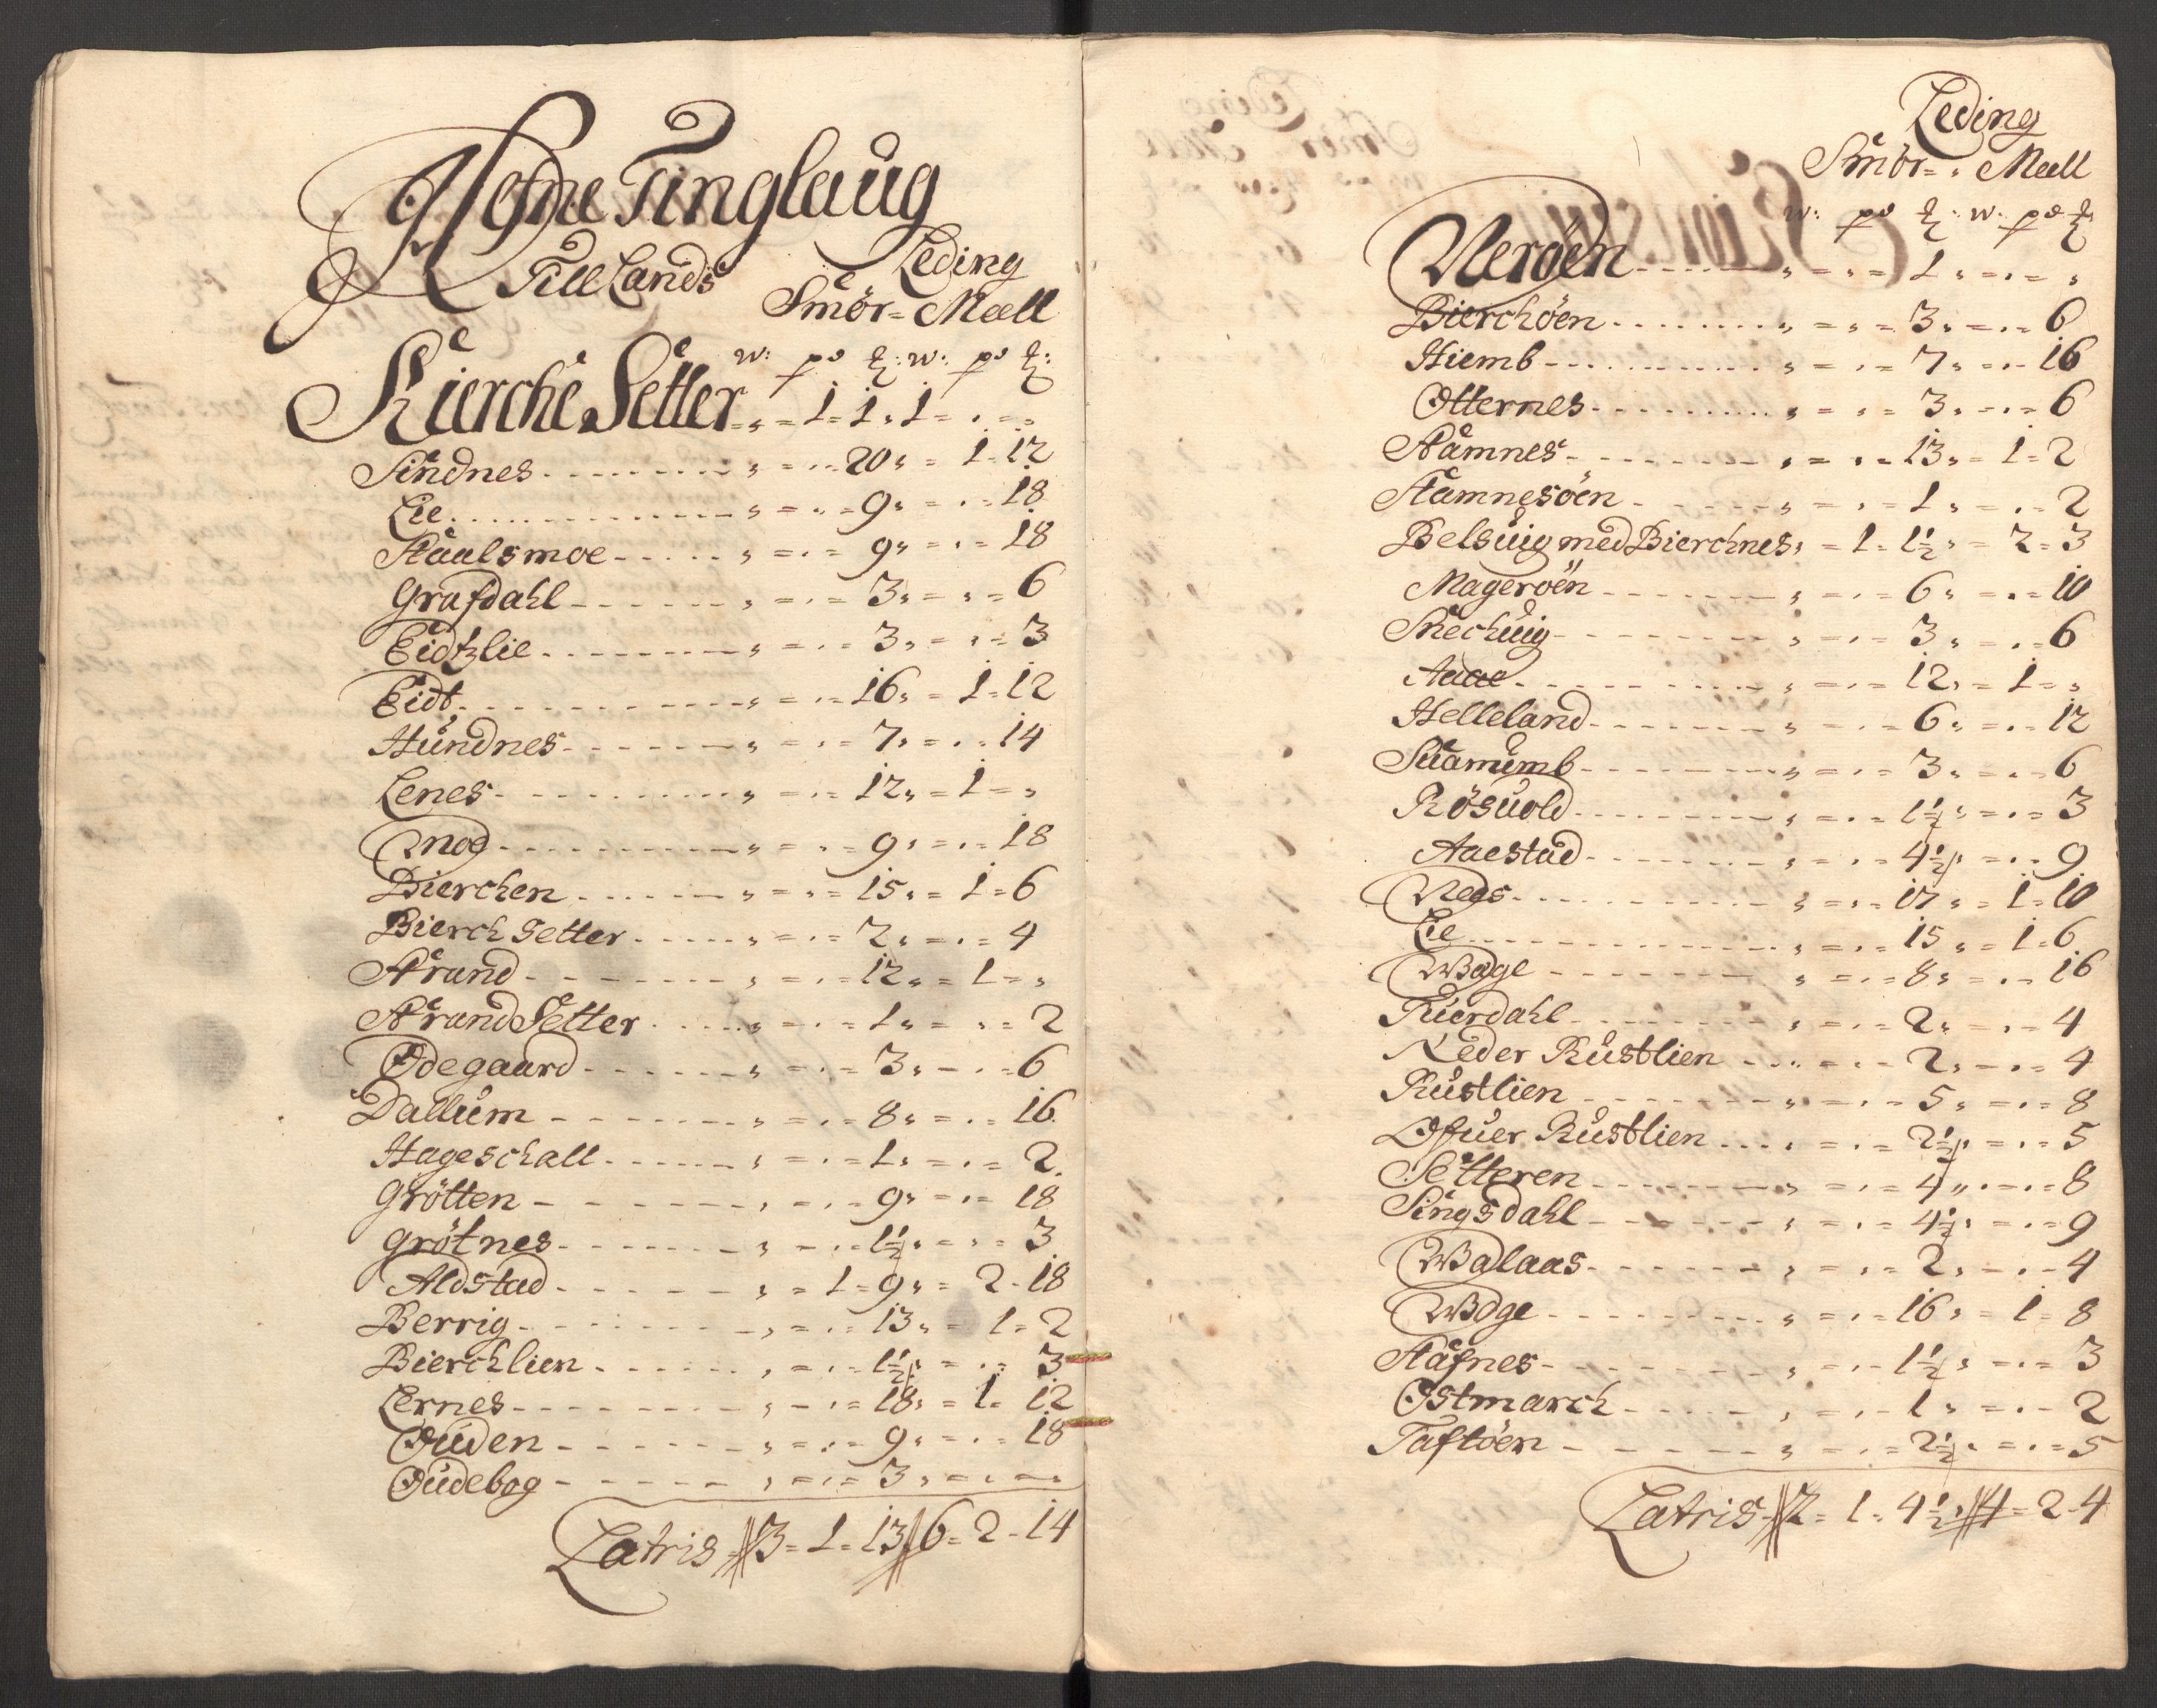 Hefne Tinglaug
Till Lands Leding
Smör = Meell
w: pd ℔: w: pd ℔:
Kierche Setter „ = 1 = 1 „ 1 = . = „
Sindnes . . . „ = „ = 20 „ = 1 = 12
Lie . . . „ = „ = 9 „ = „ = 18
Staalsmoe - - - „ = „ = 9 „ = „ = 18
Grafdahl - - - „ = „ = 3 „ = „ = 6
Eidtzlie - - - „ = „ = 3 „ = „ = 3
Eidt - - - „ = „ = 16 „ = 1 = 12
Hundnes - - - „ = „ = 7 „ = „ = 14
Lenes - - - „ = „ = 12 „ = 1 = „
Moe - - - „ = „ = 9 „ = „ = 18
Bierchen - - - „ = „ = 15 „ = 1 = 6
Bierch Setter - - - „ = „ = 2 „ = „ = 4
Strand - - - „ = „ = 12 „ = 1 = „
Strand Setter - - - „ = „ = 1 „ = „ = 2
Ödegaard - - - „ = „ = 3 „ = „ = 6
Dallum - - - „ = „ = 8 „ = „ = 16
Hageschall - - - „ = „ = 1 „ = „ = 2
Grötten - - - „ = „ = 9 „ = „ = 18
Grötnes - - - „ = „ = 1½ „ = „ = 3
Aldstad - - - „ = 1 = 9 „ = 2 = 18
Berrig - - - „ = „ = 13 „ = 1 = 2
Bierchlien - - - „ = „ = 1½ „ = „ = 3
Lernes - - - „ = „ = 18 „ = 1 = 12
Ouden - - - „ = „ = 9 „ = „ = 18
Oudebog - - - „ = „ = 3 „ = „ = „
Latris 3 = 1 = 13 6 = 2 = 14
Leding
Smör = „ Meell
w: pd ℔: w: pd ℔:
Nerøen - - - „ = „ = 1 „ = „ = „
Bierchöen - - - „ = „ = 3 „ = „ = 6
Hiemb - - - „ = „ = 7 „ = „ = 16
Otternes - - - „ = „ = 3 „ = „ = 6
Stamnes - - - „ = „ = 13 „ = 1 = 2
Stamnesöen - - - „ = „ = 1 „ = „ = 2
Belsuig med Bierchnes „ = 1 = 1½ „ = 2 = 3
Mageröen - - - „ = „ = 6 „ = „ = 10
Snechuig - - - „ = „ = 3 „ = „ = 6
Aaae - - - „ = „ = 12 „ = 1 = „
Helleland - - - „ = „ = 6 „ = „ = 12
Suanumb - - - „ = „ = 3 „ = „ = 6
Rösuold - - - „ = „ = 1½ „ = „ = 3
Aaestad - - - „ = „ = 4½ „ = „ = 9
Nees - - - „ = „ = 17 „ = 1 = 10
Lie - - - „ = „ = 15 „ = 1 = 6
Wage - - - „ = „ = 8 „ = „ = 16
Tuerdahl - - - „ = „ = 2 „ = „ = 4
Neder Rustlien - - - „ = „ = 2 „ = „ = 4
Rustlien - - - „ = „ = 5 „ = „ = 8
Öfuer Rustlien - - - „ = „ = 2½ „ = „ = 5
Setteren - - - „ = „ = 4 „ = „ = 8
Singsdahl - - - „ = „ = 4½ „ = „ = 9
Walaas - - - „ = „ = 2 „ = „ = 4
Woge - - - „ = „ = 16 „ = 1 = 8
Stafnes - - - „ = „ = 1½ „ = „ = 3
Ostmarch - - - „ = „ = 1 „ = „ = 2
Taftöen - - - „ = „ = 2½ „ = „ = 5
Latris 2 = 1 = 4½ 4 = 2 = 4